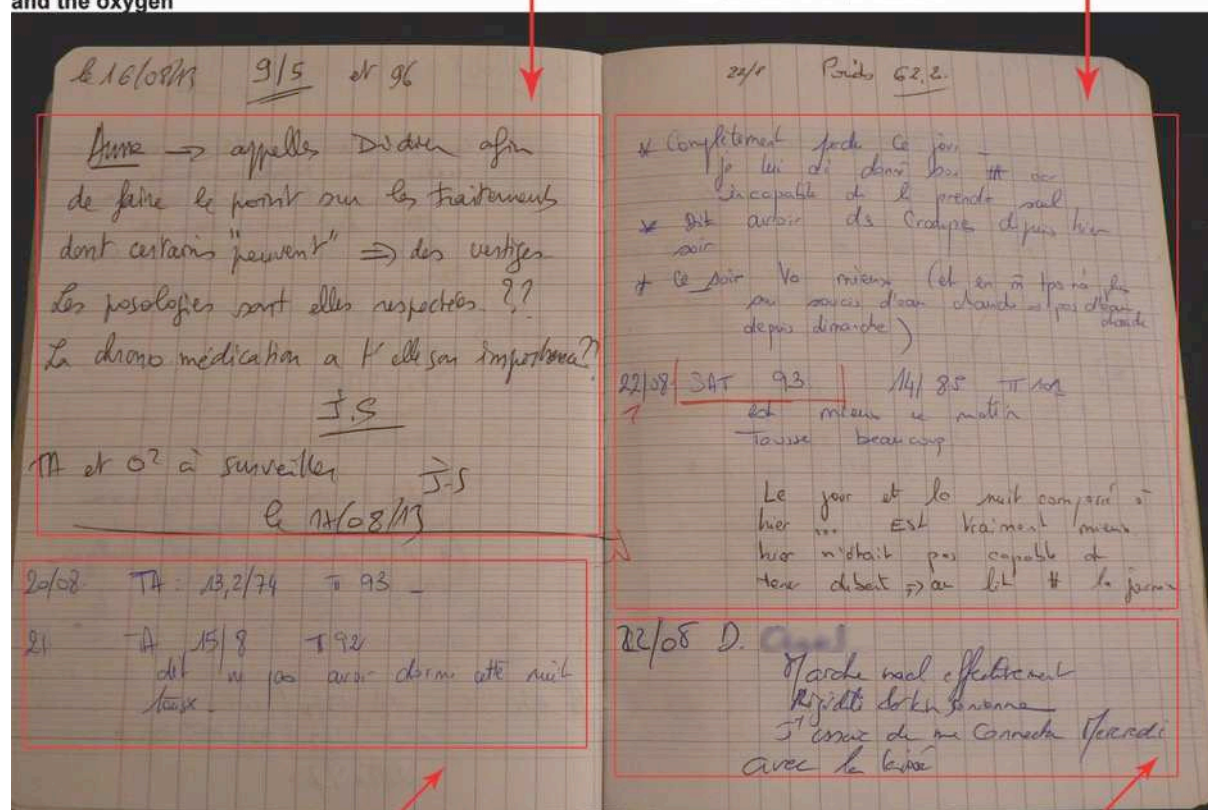 and the oxygen
le 16/08/13 9/5 et 96
Anne → appelles Didier afin
de faire le point sur les traitements
dont certains "peuvent" ⇒ des vertiges
Les posologies sont elles respectées ??
La chrono médication a t'elle son importance ?
J.S
TA et O² à surveiller J-S
le 17/08/13
20/08 TA : 13,2/74 π 93 -
21 TA 15/8 π 92
dit ne pas avoir dormi cette nuit
toux
22/8 Poids 62,2.
* Complètement ce jour -
je lui ai donné son car
incapable de le prendre seul
* Dit avoir des crampes depuis hier
soir
* Ce soir Va mieux (et en m̂ tps
soucis d'eau chaude = pas d'eau chaude
depuis dimanche)
22/08 SAT 93 14/85 π 102
est mieux ce matin
Tousse beaucoup
Le jour et la nuit comparé à
hier ... Est vraiment mieux
hier n'était pas capable de
tenir debout ⇒ au lit # la
22/08 D.
Marche mal effectivement
Rigidité
J'essaie de me connecter Mercredi
avec la